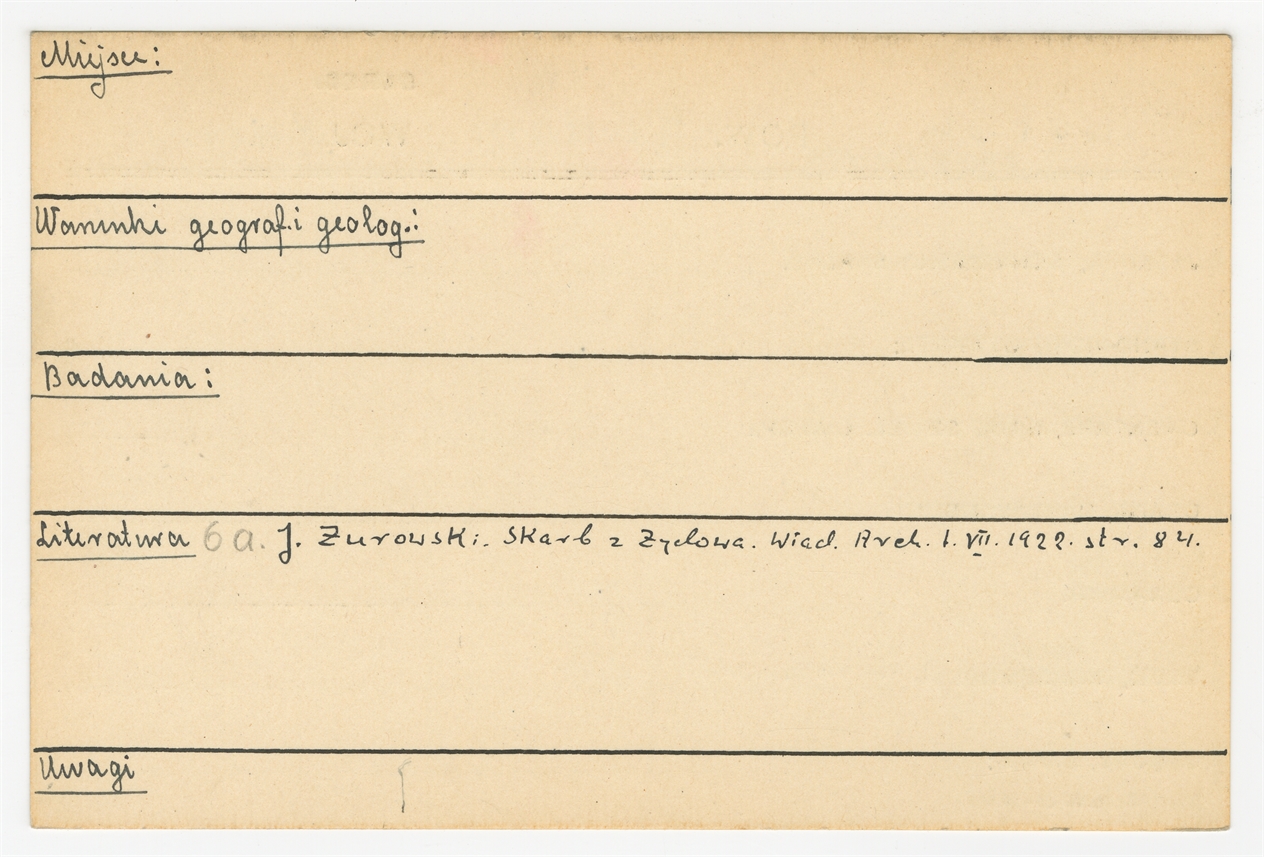 Miejsce:
Warunki geograf.i geolog.:
Badania:
Literatura 6a. J. Zurowski. Skarb z Zydowa. Wiad. Arch. t. VII. 1922. str. 84.
Uwagi